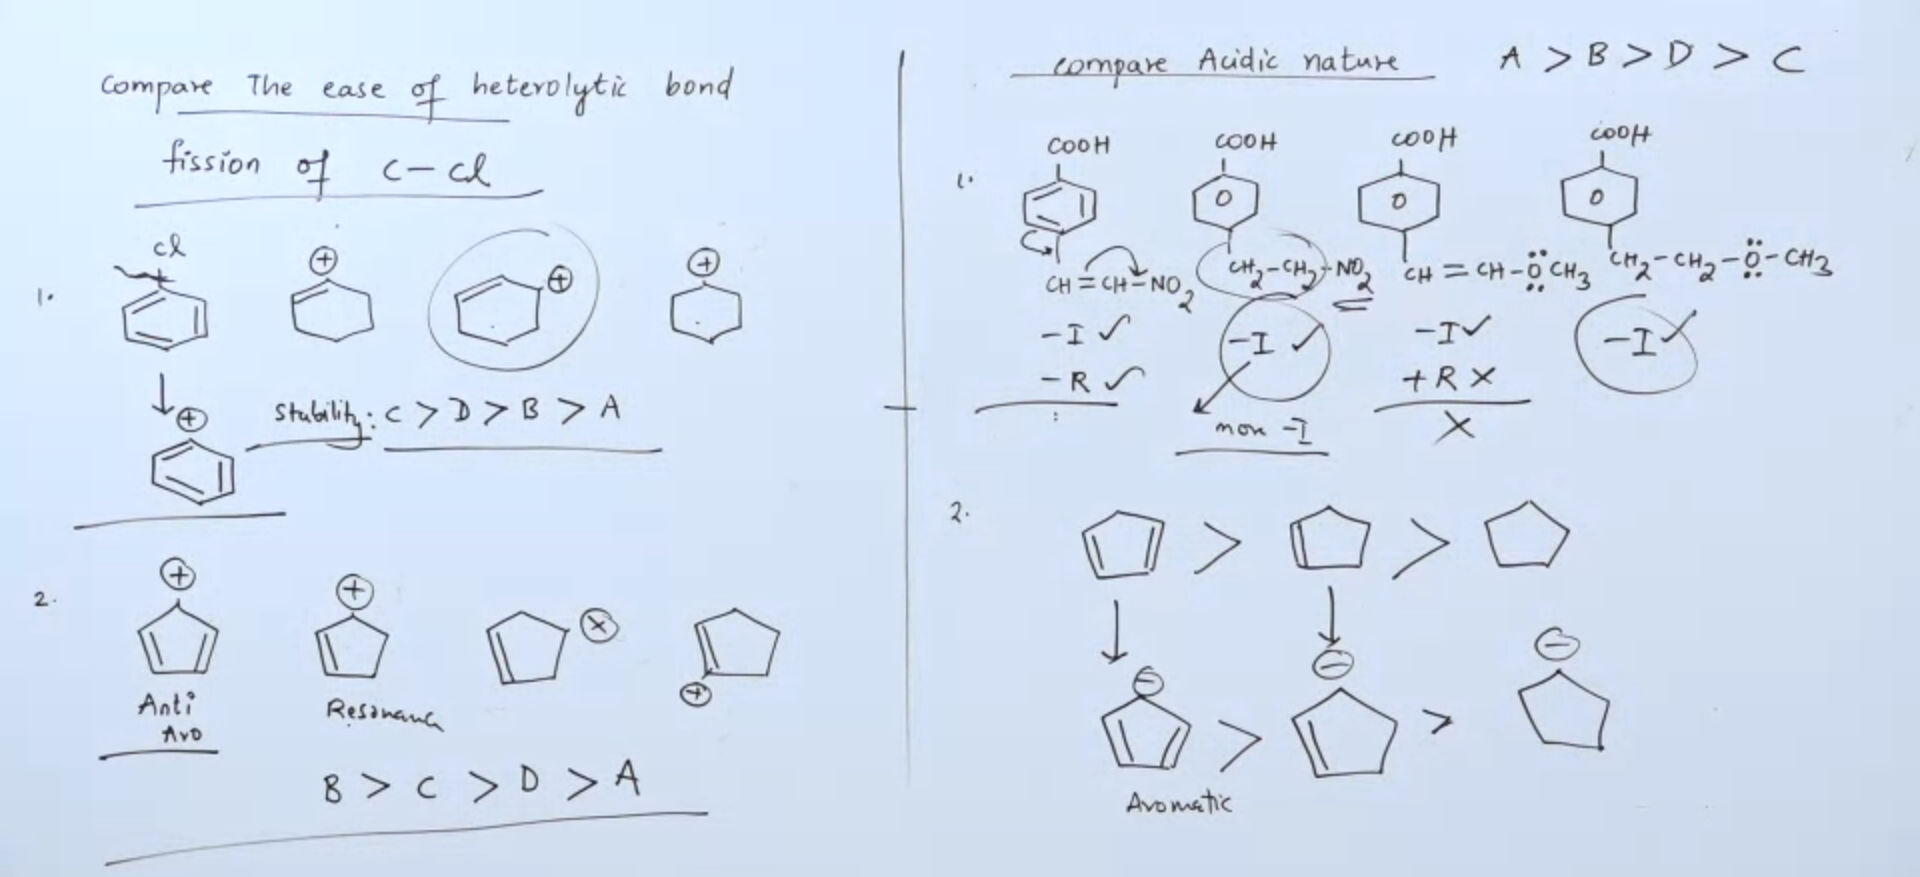 Compare The ease of heterolytic bond
fission of C-Cl
1.
Cl
⊕ ⊕ ⊕
⊕
Stability: C > D > B > A
2.
⊕ ⊕ ⊗ ⊕
Anti
Aro
Resonance
B > C > D > A
compare Acidic nature A > B > D > C
1.
COOH COOH COOH COOH
O O O
CH=CH-NO2 CH2-CH2-NO2 CH=CH-ÖCH3 CH2-CH2-Ö-CH3
-I ✓ -I ✓ -I ✓ -I ✓
-R ✓ +R ×
more -I ×
2.
> >
⊖ ⊖ ⊖
> >
Aromatic